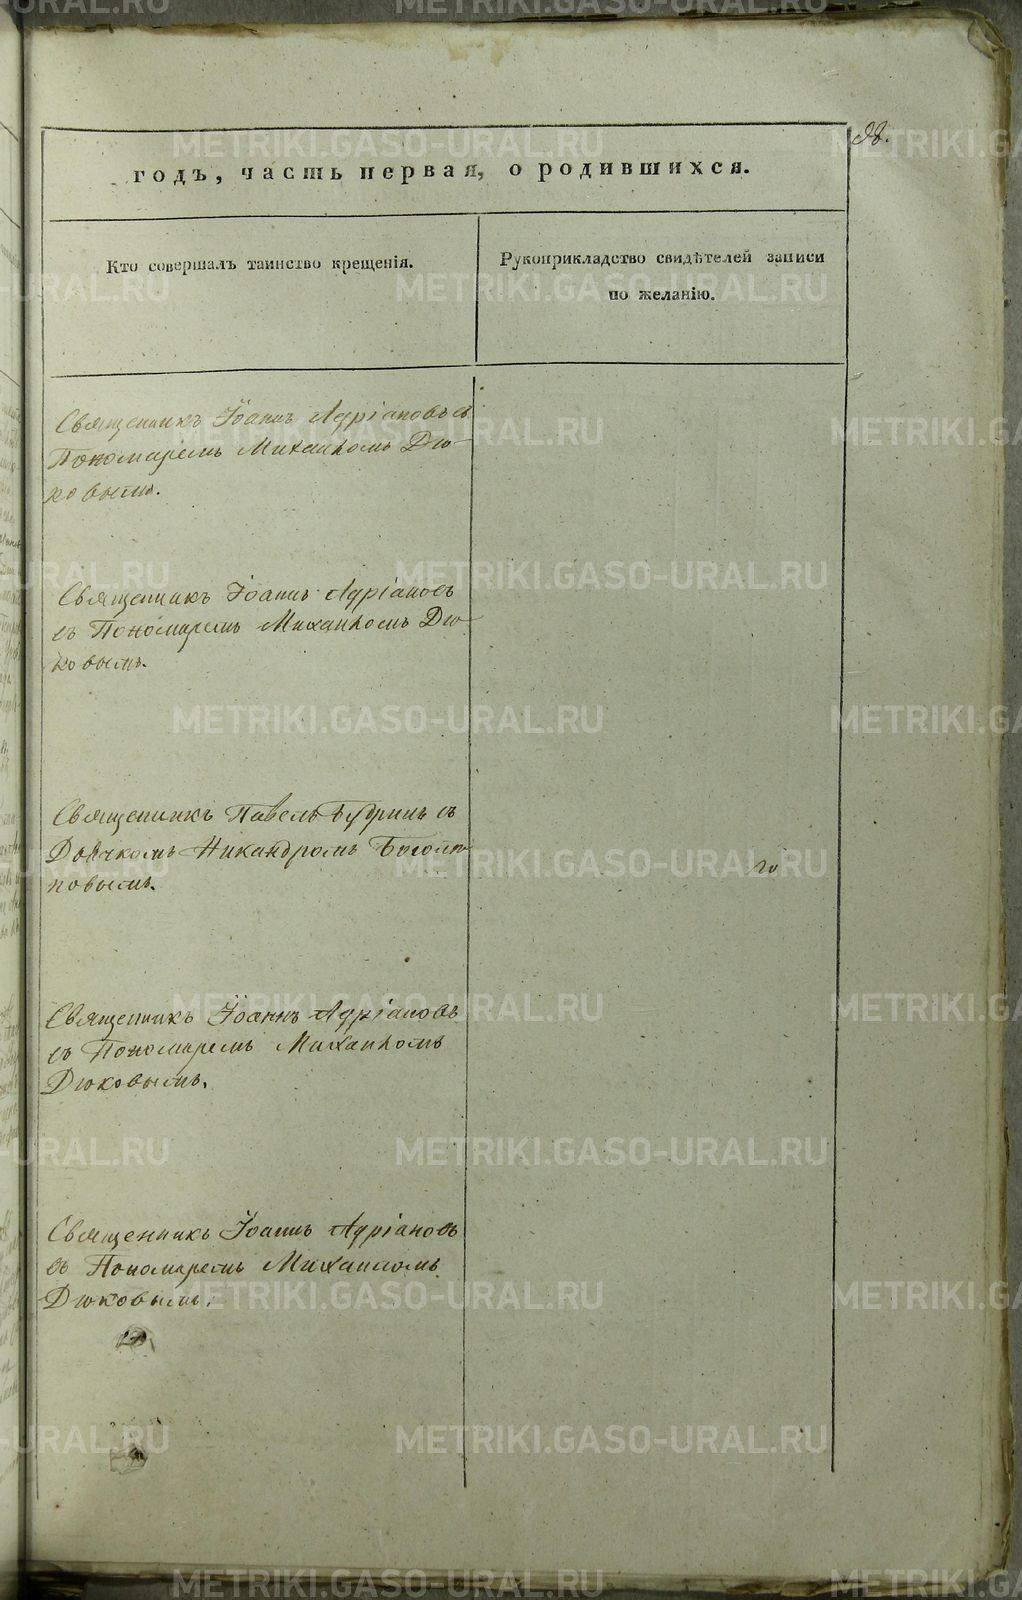 98.
годъ, часть первая, о родившихся.
Кто совершалъ таинство крещенія.
Рукоприкладство свидѣтелей записи
по желанію.
Священникъ Іоаннъ Адріановъ съ
Пономаремъ Михаиломъ Дю-
ковымъ.
Священникъ Іоаннъ Адріановъ
съ Пономаремъ Михаиломъ Дю-
ковымъ.
Священникъ Павелъ съ
Дьячкомъ Никандромъ Боголю-
повымъ.
Священникъ Іоаннъ Адріановъ
съ Пономаремъ Михаиломъ
Дюковымъ.
Священникъ Іоаннъ Адріановъ
съ Пономаремъ Михаиломъ
Дюковымъ.
METRIKI.GASO-URAL.RU